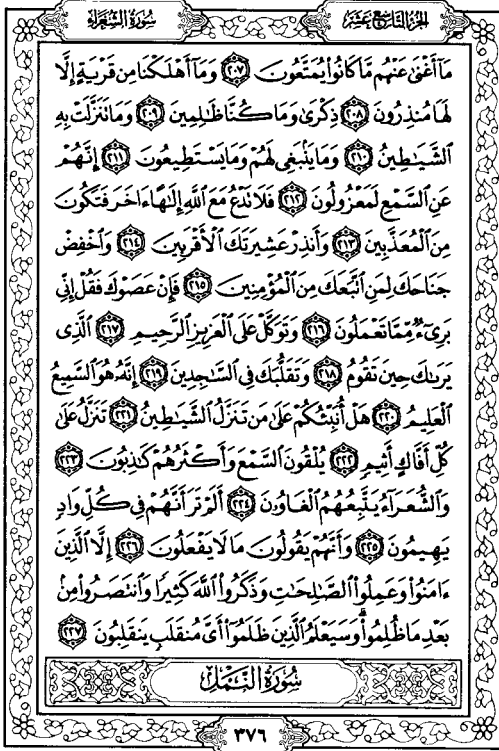 سورة الشعراء
الجزء التاسع عشر
مَآ أَغْنَىٰ عَنْهُم مَّا كَانُوا۟ يُمَتَّعُونَ ٢٠٧ وَمَآ أَهْلَكْنَا مِن قَرْيَةٍ إِلَّا
لَهَا مُنذِرُونَ ٢٠٨ ذِكْرَىٰ وَمَا كُنَّا ظَـٰلِمِينَ ٢٠٩ وَمَا تَنَزَّلَتْ بِهِ
ٱلشَّيَـٰطِينُ ٢١٠ وَمَا يَنۢبَغِى لَهُمْ وَمَا يَسْتَطِيعُونَ ٢١١ إِنَّهُمْ
عَنِ ٱلسَّمْعِ لَمَعْزُولُونَ ٢١٢ فَلَا تَدْعُ مَعَ ٱللَّهِ إِلَـٰهًا ءَاخَرَ فَتَكُونَ
مِنَ ٱلْمُعَذَّبِينَ ٢١٣ وَأَنذِرْ عَشِيرَتَكَ ٱلْأَقْرَبِينَ ٢١٤ وَٱخْفِضْ
جَنَاحَكَ لِمَنِ ٱتَّبَعَكَ مِنَ ٱلْمُؤْمِنِينَ ٢١٥ فَإِنْ عَصَوْكَ فَقُلْ إِنِّى
بَرِىٓءٌ مِّمَّا تَعْمَلُونَ ٢١٦ وَتَوَكَّلْ عَلَى ٱلْعَزِيزِ ٱلرَّحِيمِ ٢١٧ ٱلَّذِى
يَرَىٰكَ حِينَ تَقُومُ ٢١٨ وَتَقَلُّبَكَ فِى ٱلسَّـٰجِدِينَ ٢١٩ إِنَّهُۥ هُوَ ٱلسَّمِيعُ
ٱلْعَلِيمُ ٢٢٠ هَلْ أُنَبِّئُكُمْ عَلَىٰ مَن تَنَزَّلُ ٱلشَّيَـٰطِينُ ٢٢١ تَنَزَّلُ عَلَىٰ
كُلِّ أَفَّاكٍ أَثِيمٍ ٢٢٢ يُلْقُونَ ٱلسَّمْعَ وَأَكْثَرُهُمْ كَـٰذِبُونَ ٢٢٣
وَٱلشُّعَرَآءُ يَتَّبِعُهُمُ ٱلْغَاوُۥنَ ٢٢٤ أَلَمْ تَرَ أَنَّهُمْ فِى كُلِّ وَادٍ
يَهِيمُونَ ٢٢٥ وَأَنَّهُمْ يَقُولُونَ مَا لَا يَفْعَلُونَ ٢٢٦ إِلَّا ٱلَّذِينَ
ءَامَنُوا۟ وَعَمِلُوا۟ ٱلصَّـٰلِحَـٰتِ وَذَكَرُوا۟ ٱللَّهَ كَثِيرًا وَٱنتَصَرُوا۟ مِنۢ
بَعْدِ مَا ظُلِمُوا۟ ۗ وَسَيَعْلَمُ ٱلَّذِينَ ظَلَمُوٓا۟ أَىَّ مُنقَلَبٍ يَنقَلِبُونَ ٢٢٧
سُورَةُ النَّمْلِ
٣٧٦